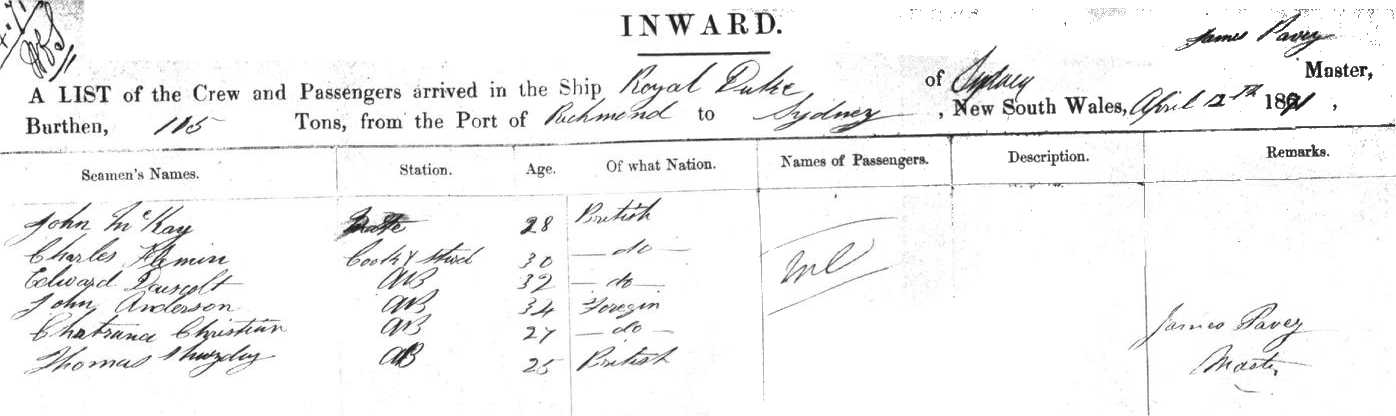 INWARD.
James Pavey
A LIST of the Crew and Passengers arrived in the Ship Royal Duke of Sydney Master,
Burthen, 115 Tons, from the Port of Richmond to Sydney, New South Wales, April 12th 1891,
Seamen's Names. Station. Age. Of what Nation. Names of Passengers. Description. Remarks.
John McKay Mate 28 British
Charles Flemin Cook & Stwd 30 — do —
Edward 32 — do — AB
John Anderson AB 34 Foregin
Christian AB 27 — do —
Thomas AB 25 British
James Pavey
Master